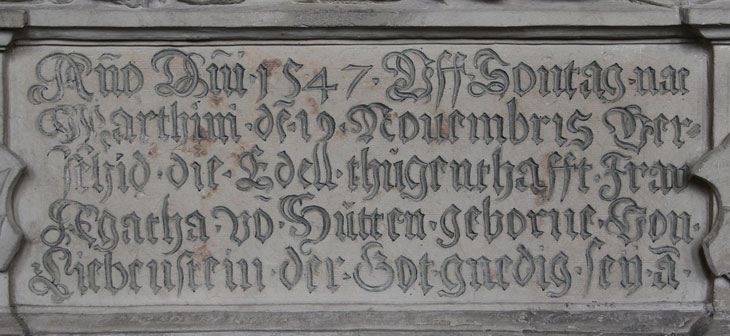 Año Dm̃i·1547·Vff·Sontag·nac
Marthini·dē·12·Nouembris Ver-
schid·die·Edell·thügenthafft·Fraw
Agatha·vō·Hütten·geborne·Von·
Liebenstein·der·Got·gnedig·sey·ā·